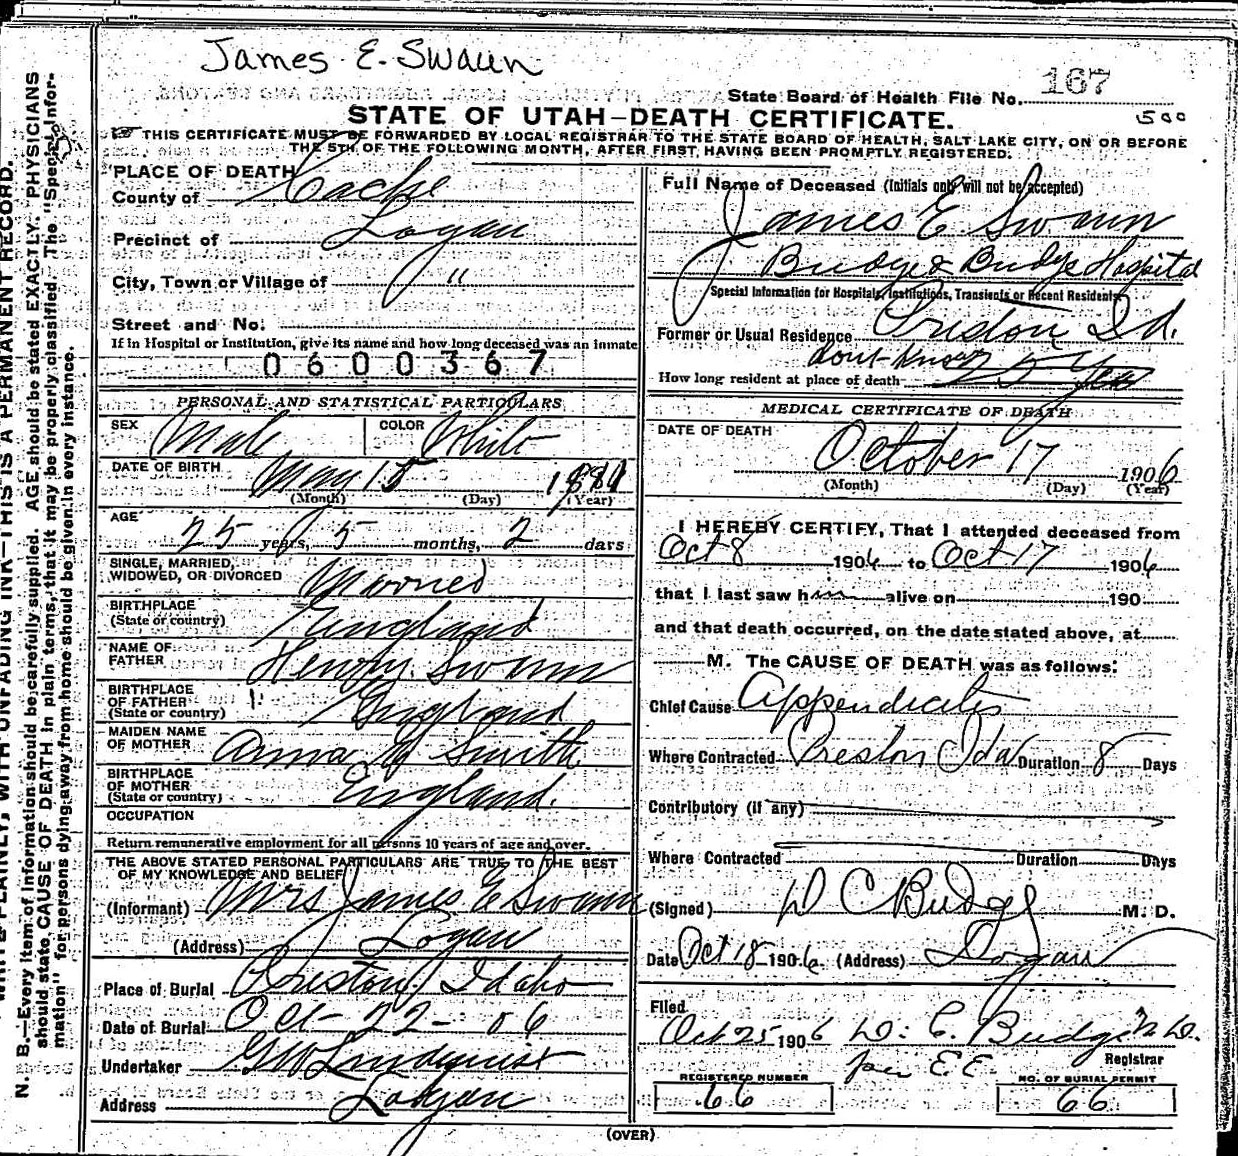 James E. Swann
State Board of Health File No. 167
STATE OF UTAH–DEATH CERTIFICATE.
500
THIS CERTIFICATE MUST BE FORWARDED BY LOCAL REGISTRAR TO THE STATE BOARD OF HEALTH, SALT LAKE CITY, ON OR BEFORE
THE 5TH OF THE FOLLOWING MONTH, AFTER FIRST HAVING BEEN PROMPTLY REGISTERED.
PLACE OF DEATH
County of Cache
Precinct of Logan
City, Town or Village of "
Street and No.
If in Hospital or Institution, give its name and how long deceased was an inmate
0600367
PERSONAL AND STATISTICAL PARTICULARS
SEX Male COLOR White
DATE OF BIRTH May 15 1881
(Month) (Day) (Year)
AGE 25 years, 5 months, 2 days
SINGLE, MARRIED,
WIDOWED, OR DIVORCED Married
BIRTHPLACE
(State or country) England
NAME OF
FATHER Henry Swann
BIRTHPLACE
OF FATHER
(State or country) England
MAIDEN NAME
OF MOTHER Anna M Smith
BIRTHPLACE
OF MOTHER
(State or country) England.
OCCUPATION
Return remunerative employment for all persons 10 years of age and over.
THE ABOVE STATED PERSONAL PARTICULARS ARE TRUE TO THE BEST
OF MY KNOWLEDGE AND BELIEF
(Informant) Mrs James E Swann
(Address) Logan
Place of Burial Preston, Idaho
Date of Burial Oct-22-06
Undertaker GW Lindquist
Address Logan
Full Name of Deceased (Initials only will not be accepted)
James E Swann
Budge & Budge Hospital
Special Information for Hospitals, Institutions, Transients or Recent Residents
Former or Usual Residence Preston Id.
dont know
How long resident at place of death 25 Yrs
MEDICAL CERTIFICATE OF DEATH
DATE OF DEATH
October 17 1906
(Month) (Day) (Year)
I HEREBY CERTIFY, That I attended deceased from
Oct 8 1906 to Oct 17 1906
that I last saw him alive on 190
and that death occurred, on the date stated above, at
M. The CAUSE OF DEATH was as follows:
Chief Cause Appendicitis
Where Contracted Preston Ida Duration 8 Days
Contributory (if any)
Where Contracted Duration Days
(Signed) D C Budge M. D.
Date Oct 18 1906 (Address) Logan
Filed
Oct 25 1906 D. C. Budge M.D.
Registrar
per E.E.
REGISTERED NUMBER
66
NO. OF BURIAL PERMIT
66
(OVER)
WRITE PLAINLY, WITH UNFADING INK—THIS IS A PERMANENT RECORD.
N. B.—Every item of information should be carefully supplied. AGE should be stated EXACTLY. PHYSICIANS
should state CAUSE OF DEATH in plain terms, that it may be properly classified. The "Special Infor-
mation" for persons dying away from home should be given in every instance.